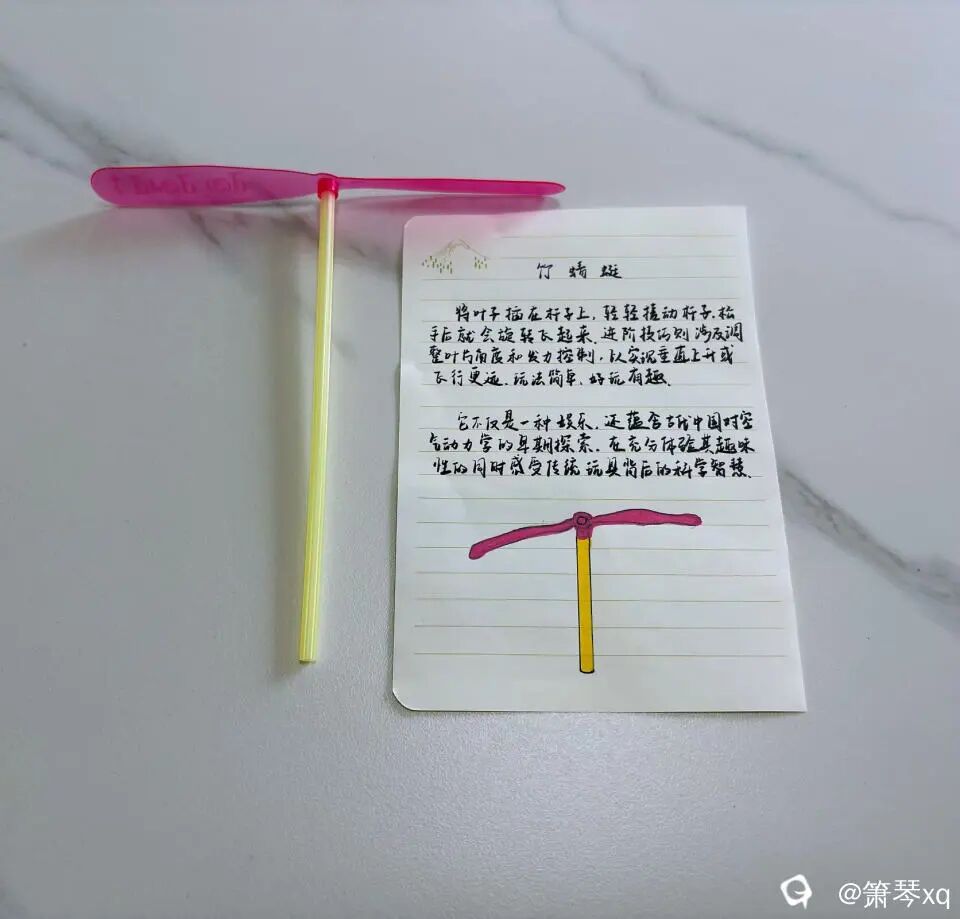 竹蜻蜓
将叶子插在杆子上,轻轻搓动杆子.松
手后就会旋转飞起来.进阶技巧则涉及调
整叶片角度和发力控制,以实现垂直上升或
飞行更远.玩法简单.好玩有趣.
它不仅是一种娱乐.还蕴含古代中国对空
气动力学的早期探索.在充分体验其趣味
性的同时感受传统玩具背后的科学智慧.
@箫琴xq